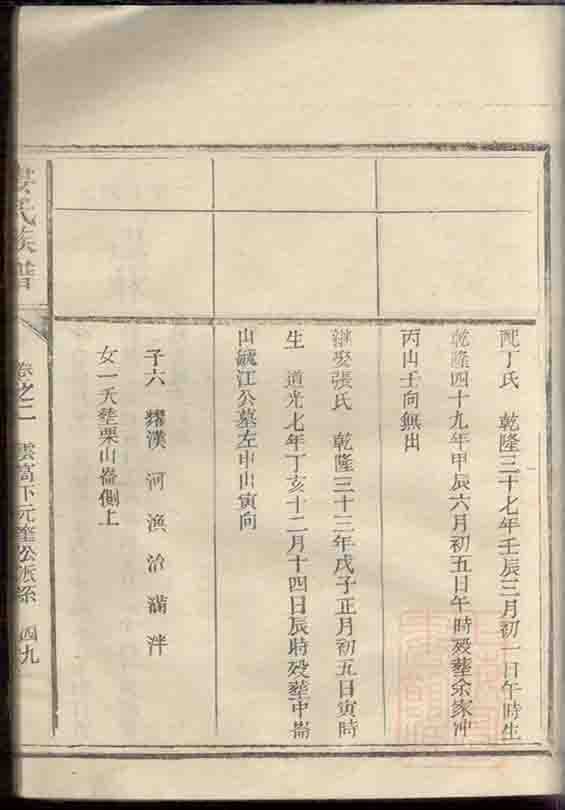 配丁氏 乾隆三十七年壬辰三月初一日午時生
乾隆四十九年甲辰六月初五日午時殁葬余家冲
丙山壬向無出
繼娶張氏 乾隆三十三年戊子正月初五日寅時
生 道光七年丁亥十二月十四日辰時殁葬中崙
山緘江公墓左申山寅向
子六 耀漢 河 漁 治 滿 泮
女一夭葬栗山崙側上
氏族譜
卷之二 雲高下元奎公派系 四九